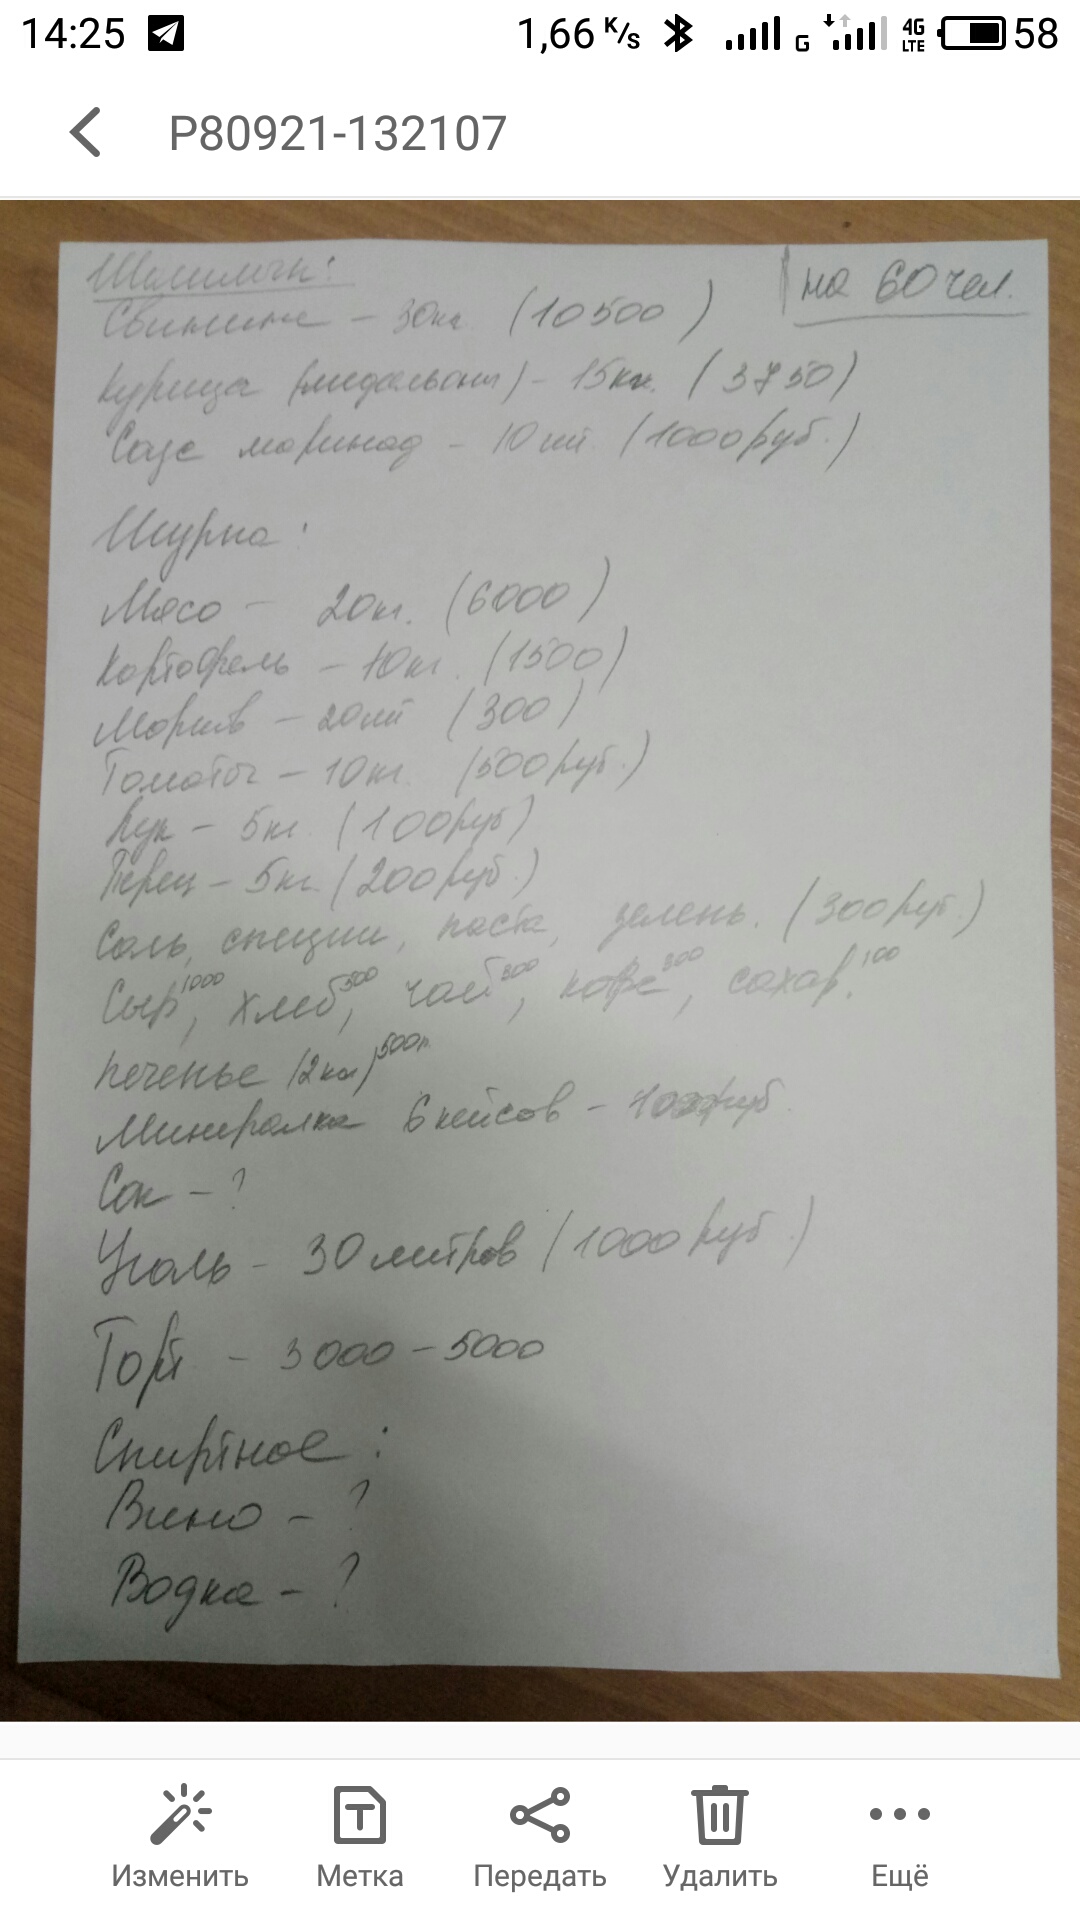 14:25 1,66 K/s G 4G LTE 58
P80921-132107
Шашлыки:
на 60 чел.
Свинина - 30кг (10500)
Курица (медальоны) - 15кг. (3750)
Соус маринад - 10шт. (1000руб.)
Шурпа:
Мясо - 20кг. (6000)
Картофель - 10кг. (1500)
Морковь - 20шт (300)
Томаты - 10кг. (500руб.)
Лук - 5кг. (100руб)
Перец - 5кг. (200руб.)
Соль, специи, паста, зелень. (300руб.)
Сыр 1000, хлеб 500, чай 300, кофе 300, сахар 100.
печенье (2кг) 500р.
Минералка 6 кейсов - 1000руб.
Сок - ?
Уголь - 30 литров (1000руб.)
Торт - 3000 - 5000
Спиртное:
Вино - ?
Водка - ?
Изменить Метка Передать Удалить Ещё